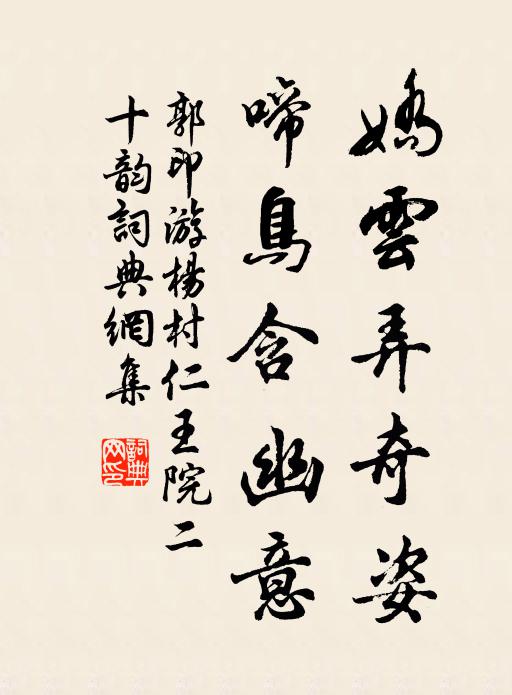 嬌雲弄奇姿
啼鳥含幽意
郭印游楊村仁王院二
十韵詞典網集
詞典
网印